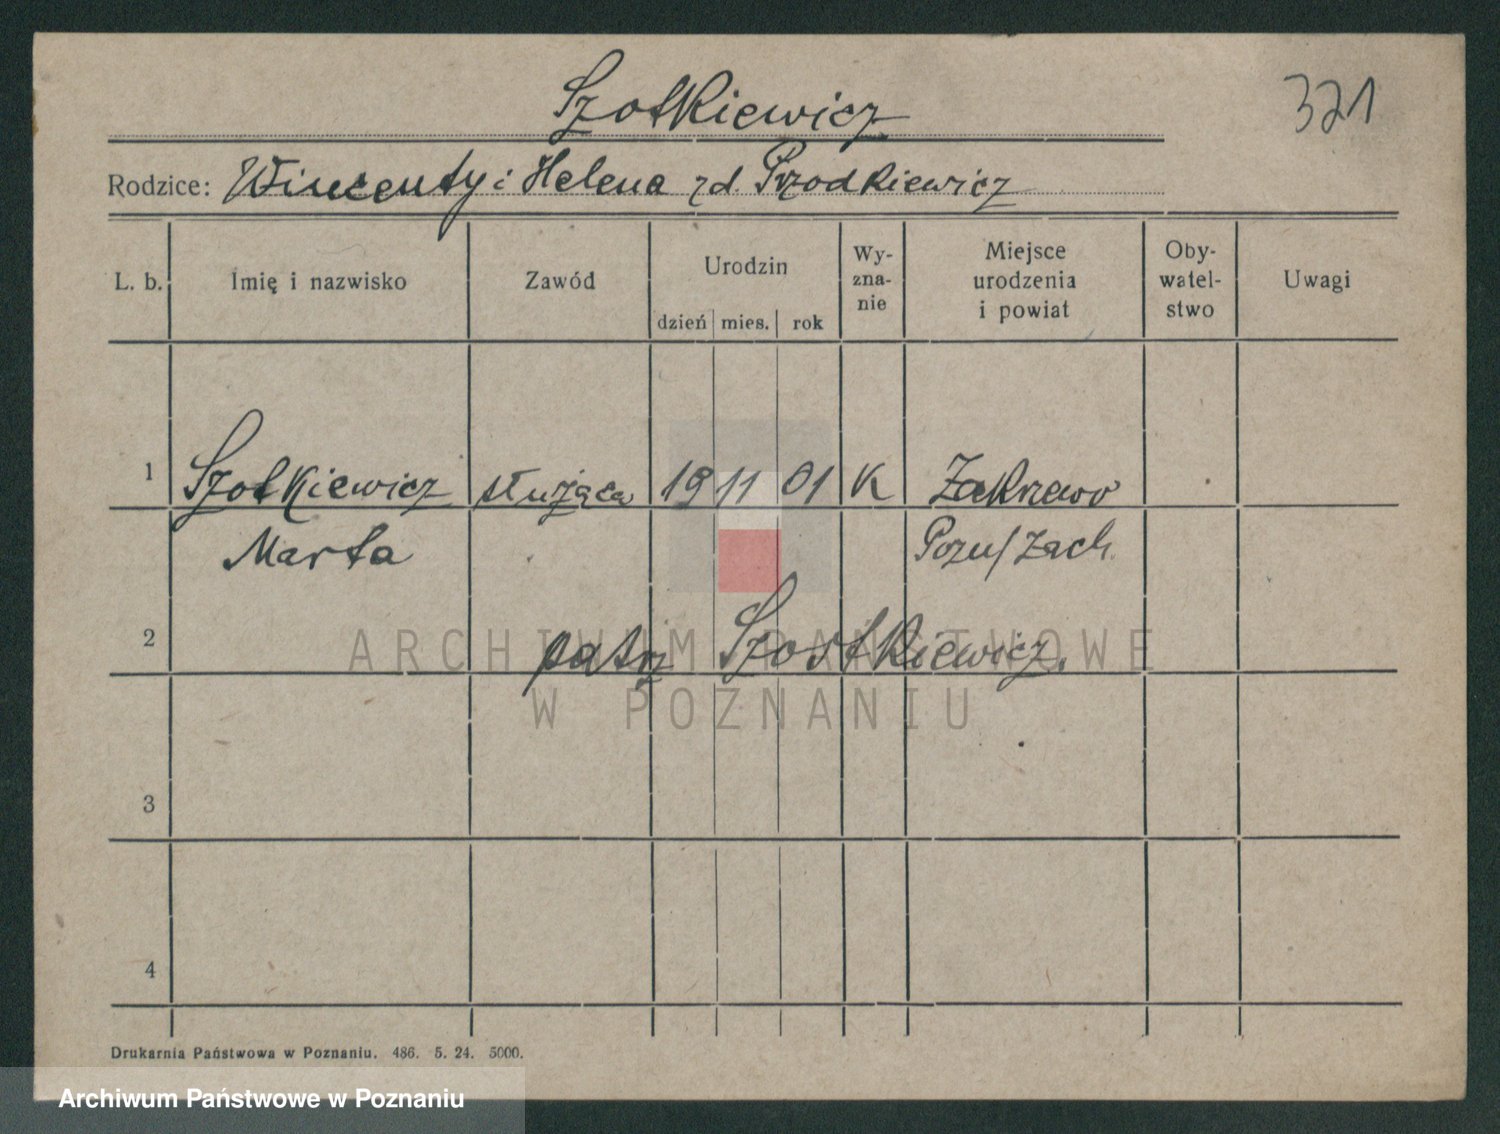 Szotkiewicz
321
Rodzice: Wincenty i Helena zd. Przodkiewicz
L. b.
Imię i nazwisko
Zawód
Urodzin
dzień mies. rok
Wy-
zna-
nie
Miejsce
urodzenia
i powiat
Oby-
watel-
stwo
Uwagi
1 Szotkiewicz służąca 19 11 01 K Zakrzewo
Marta Pozn/Zach.
2 patrz Szostkiewicz.
ARCHIWUM PAŃSTWOWE
W POZNANIU
3
4
Drukarnia Państwowa w Poznaniu. 486. 5. 24. 5000.
Archiwum Państwowe w Poznaniu